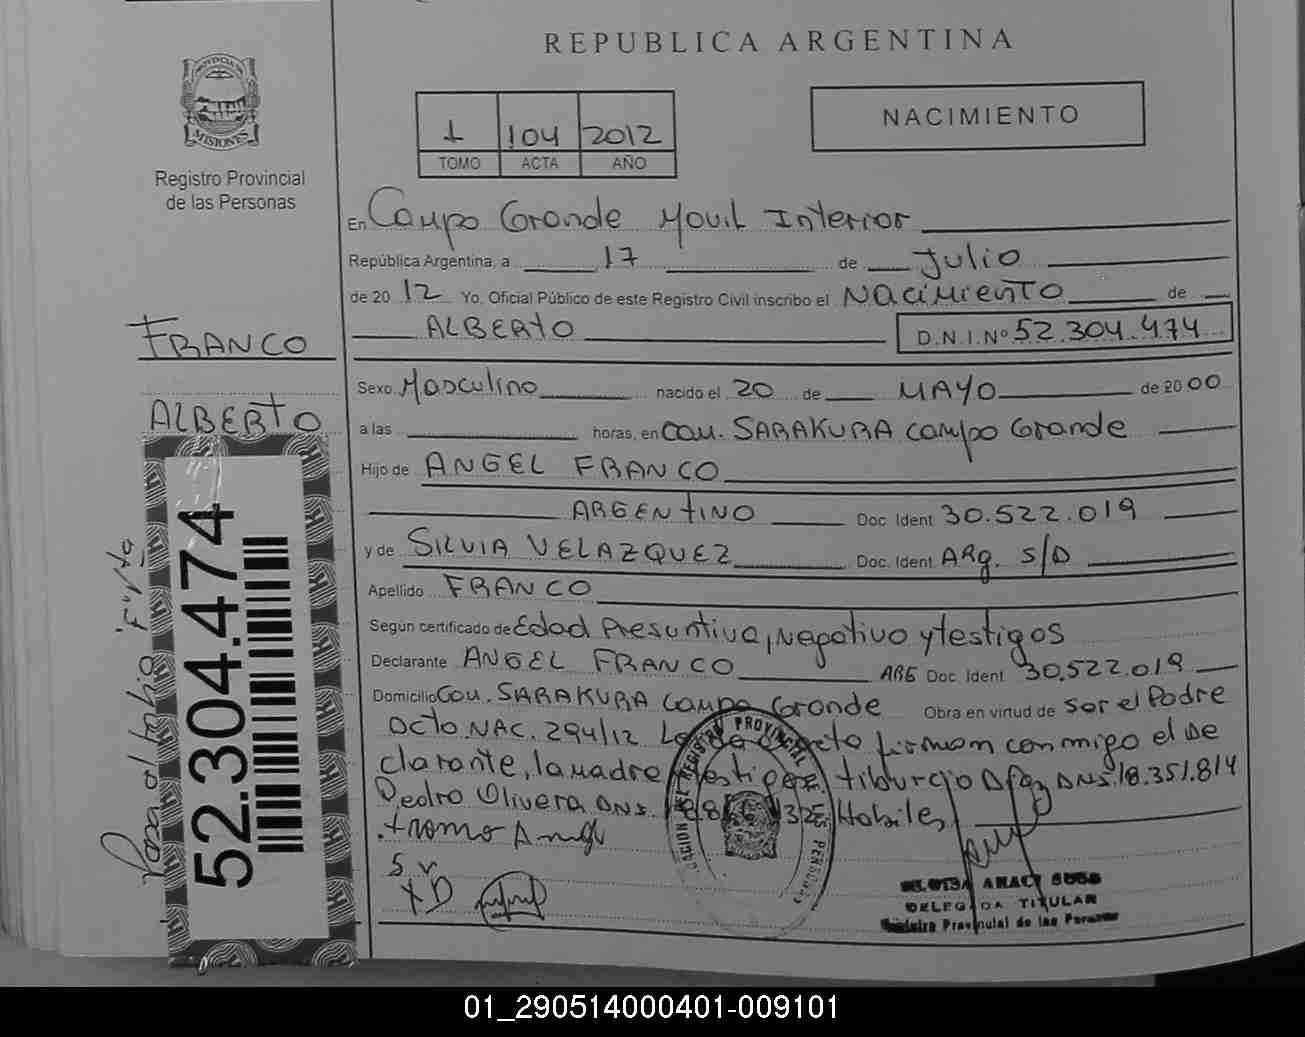 REPUBLICA ARGENTINA
PROVINCIA DE
MISIONES
Registro Provincial
de las Personas
1 104 2012
TOMO ACTA AÑO
NACIMIENTO
En Campo Grande Movil Interior
República Argentina, a 17 de Julio
de 20 12 Yo, Oficial Público de este Registro Civil inscribo el Nacimiento de
ALBERTO D.N.I. Nº 52.304.474
FRANCO
ALBERTO
Sexo Masculino nacido el 20 de MAYO de 20 00
a las horas, en Com. SARAKURA Campo Grande
Hijo de ANGEL FRANCO
ARGENTINO Doc. Ident 30.522.019
y de SILVIA VELAZQUEZ Doc. Ident. ARg. S/D
Apellido FRANCO
Según certificado de Edad Presuntiva, Negativo y testigos
Declarante ANGEL FRANCO ARG Doc. Ident 30.522.019
Domicilio Com. SARAKURA Campo Grande Obra en virtud de ser el Padre
Octo NAC. 294/12 firman conmigo el De
clarante, la madre testigos tiburcio DNS. 18.351.814
Pedro Olivera DNS. Habiles
S. V
DELEGADA TITULAR
Registro Provincial de las Personas
52.304.474
01_290514000401-009101